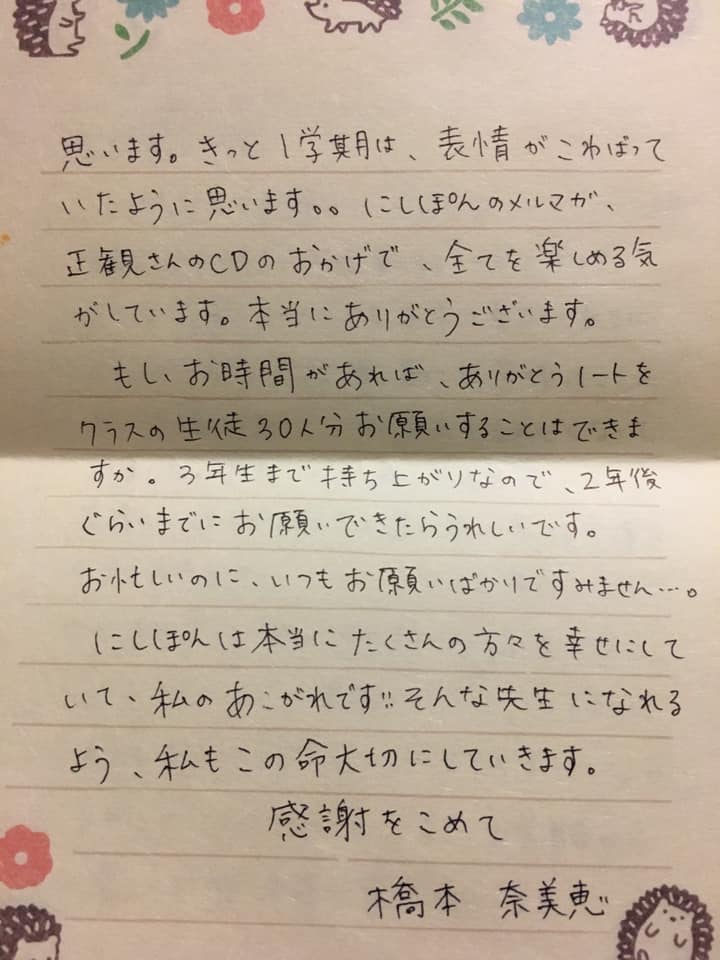 思います。きっと1学期は、表情がこわばって
いたように思います。。にしぽんのメルマガ、
正観さんのCDのおかげで、全てを楽しめる気
がしています。本当にありがとうございます。
もし、お時間があれば、ありがとうノートを
クラスの生徒30人分お願いすることはできま
すか。3年生まで持ち上がりなので、2年後
ぐらいまでにお願いできたらうれしいです。
お忙しいのに、いつもお願いばかりですみません…。
にしぽんは本当にたくさんの方々を幸せにして
いて、私のあこがれです!!そんな先生になれる
よう、私もこの命大切にしていきます。
感謝をこめて
橋本 奈美恵